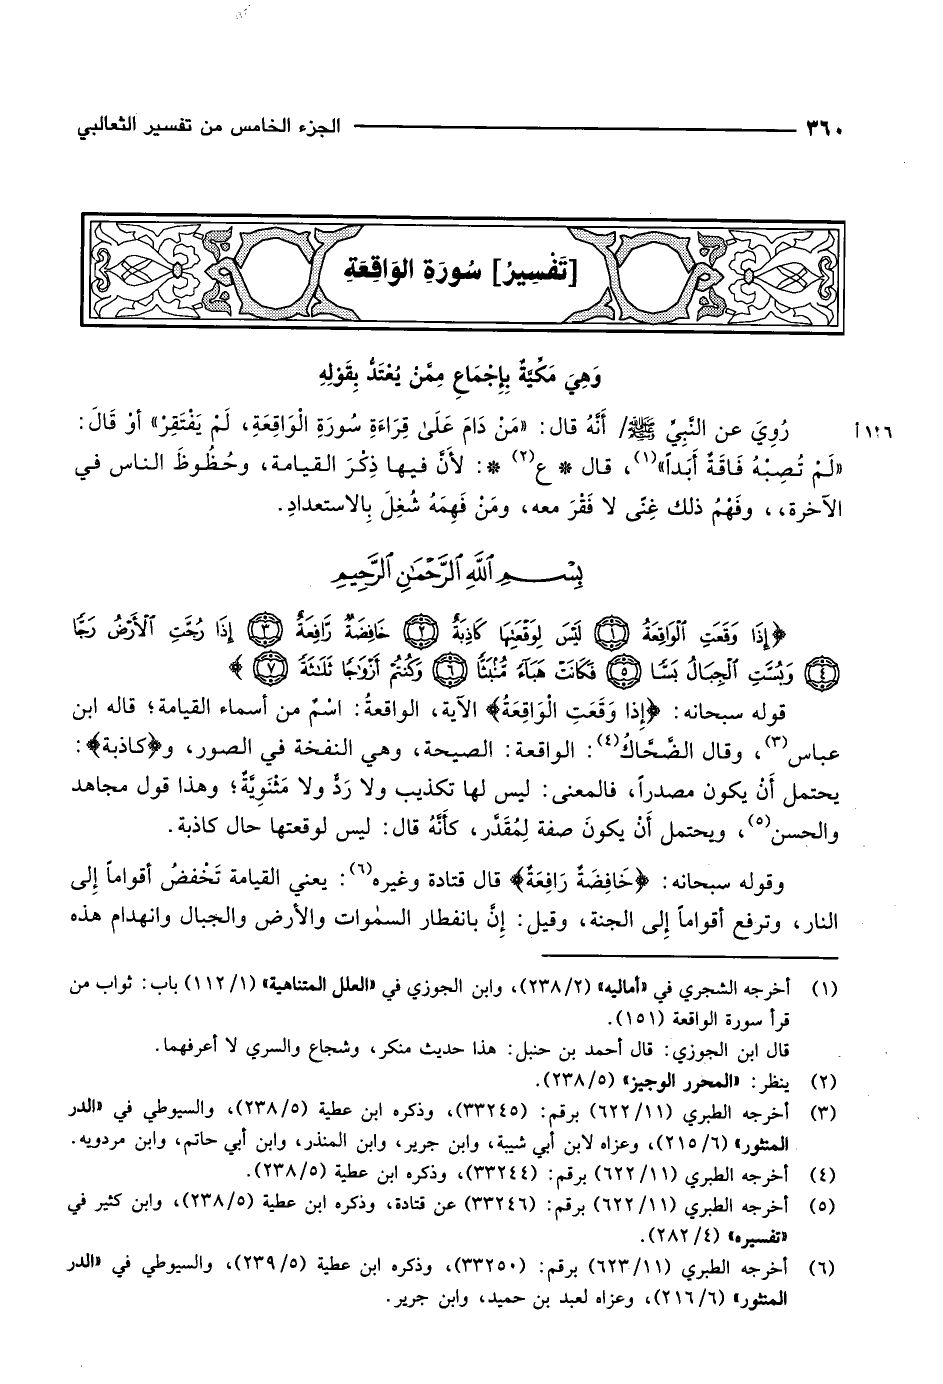 ٣٦٠ الجزء الخامس من تفسير الثعالبي
[تَفْسِيرُ] سُورَةِ الوَاقِعَةِ
وَهِيَ مَكِّيَّةٌ بِإِجْمَاعِ مِمَّنْ يُعْتَدُّ بِقَوْلِهِ
رُوِيَ عن النَّبِيِّ ﷺ/ أَنَّهُ قال: «مَنْ دَامَ عَلَىٰ قِرَاءَةِ سُورَةِ الْوَاقِعَةِ، لَمْ يَفْتَقِرْ» أوْ قَالَ:
«لَمْ تُصِبْهُ فَاقَةٌ أَبَداً»(١)، قال * ع(٢) *: لأنَّ فيها ذِكْرَ القيامة، وحُظُوظَ الناس في
الآخرة،، وفَهْمُ ذلك غِنًى لا فَقْرَ معه، ومَنْ فَهِمَهُ شُغِلَ بِالاستعدادِ.
بِسْمِ ٱللَّهِ ٱلرَّحْمَٰنِ ٱلرَّحِيمِ
﴿إِذَا وَقَعَتِ ٱلْوَاقِعَةُ ١ لَيْسَ لِوَقْعَتِهَا كَاذِبَةٌ ٢ خَافِضَةٌ رَّافِعَةٌ ٣ إِذَا رُجَّتِ ٱلْأَرْضُ رَجًّا
٤ وَبُسَّتِ ٱلْجِبَالُ بَسًّا ٥ فَكَانَتْ هَبَآءً مُّنۢبَثًّا ٦ وَكُنتُمْ أَزْوَٰجًا ثَلَٰثَةً ٧ ﴾
قوله سبحانه: ﴿إِذا وَقَعَتِ الْوَاقِعَةُ﴾ الآية، الواقعةُ: اسْمٌ من أسماء القيامة؛ قاله ابن
عباس(٣)، وقال الضَّحَّاكُ(٤): الواقعة: الصيحة، وهي النفخة في الصور، و﴿كاذبة﴾:
يحتمل أَنْ يكون مصدراً، فالمعنى: ليس لها تكذيب ولا رَدٌّ ولا مَثْنَوِيَّةٌ؛ وهذا قول مجاهد
والحسن(٥)، ويحتمل أَنْ يكونَ صفة لِمُقَدَّر، كأَنَّهُ قال: ليس لوقعتها حال كاذبة.
وقوله سبحانه: ﴿خَافِضَةٌ رَافِعَةٌ﴾ قال قتادة وغيره(٦): يعني القيامة تَخْفضُ أقواماً إلى
النار، وترفع أقواماً إلى الجنة، وقيل: إِنَّ بانفطار السمٰوات والأرض والجبال وانهدام هذه
(١) أخرجه الشجري في «أماليه» (٢٣٨/٢)، وابن الجوزي في «العلل المتناهية» (١١٢/١) باب: ثواب من
قرأ سورة الواقعة (١٥١).
قال ابن الجوزي: قال أحمد بن حنبل: هذا حديث منكر، وشجاع والسري لا أعرفهما.
(٢) ينظر: «المحرر الوجيز» (٢٣٨/٥).
(٣) أخرجه الطبري (٦٢٢/١١) برقم: (٣٣٢٤٥)، وذكره ابن عطية (٢٣٨/٥)، والسيوطي في «الدر
المنثور» (٢١٥/٦)، وعزاه لابن أبي شيبة، وابن جرير، وابن المنذر، وابن أبي حاتم، وابن مردويه.
(٤) أخرجه الطبري (٦٢٢/١١) برقم: (٣٣٢٤٤)، وذكره ابن عطية (٢٣٨/٥).
(٥) أخرجه الطبري (٦٢٢/١١) برقم: (٣٣٢٤٦) عن قتادة، وذكره ابن عطية (٢٣٨/٥)، وابن كثير في
«تفسيره» (٢٨٢/٤).
(٦) أخرجه الطبري (٦٢٣/١١) برقم: (٣٣٢٥٠)، وذكره ابن عطية (٢٣٩/٥)، والسيوطي في «الدر
المنثور» (٢١٦/٦)، وعزاه لعبد بن حميد، وابن جرير.